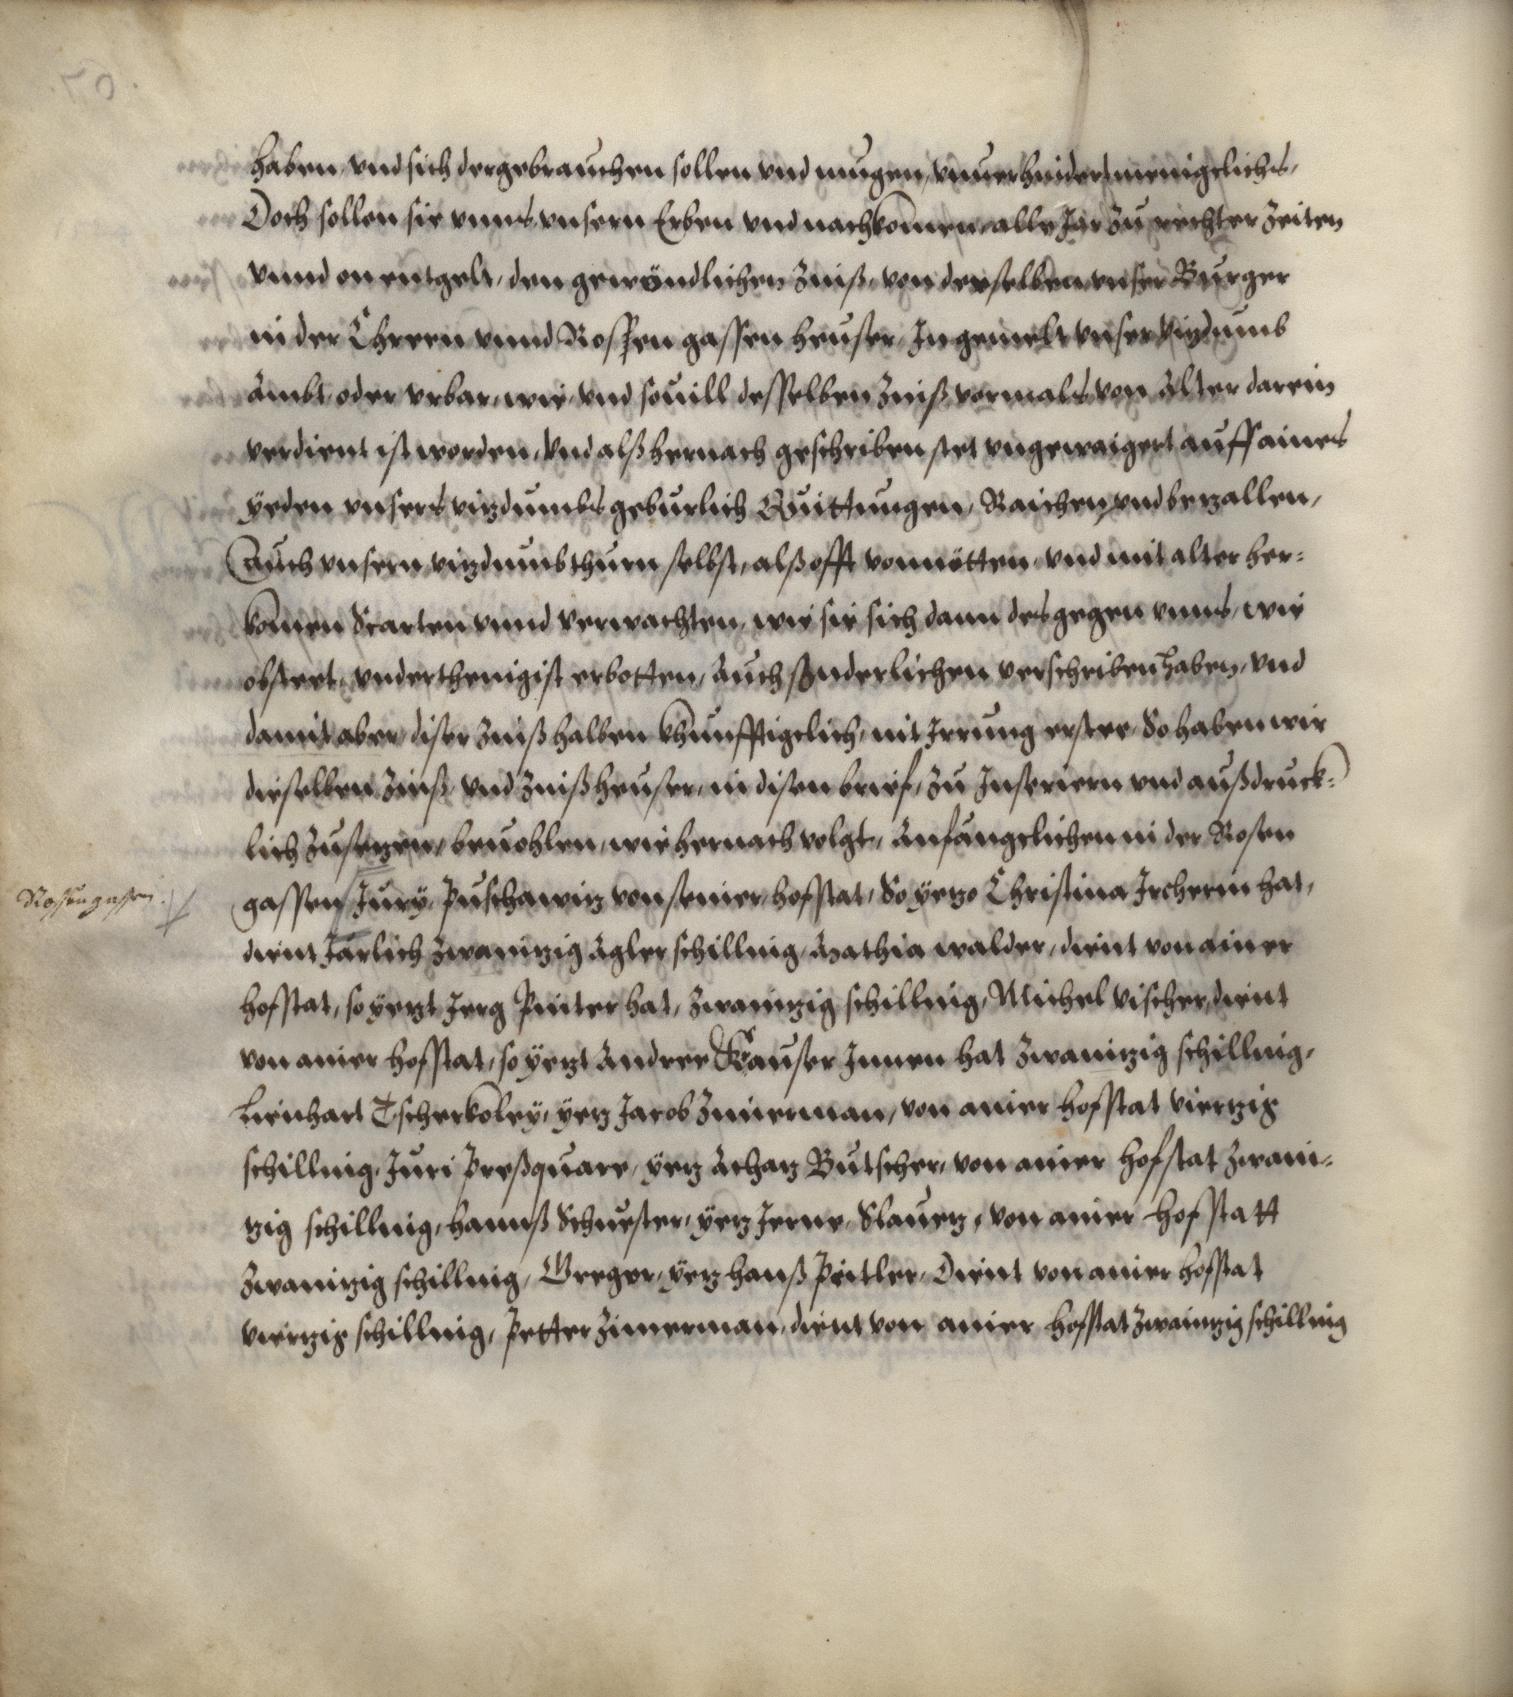 haben, vnd sich dergebrauchen sollen vnd mugen, vnuerhindert menigelichs,
Doch sollen sie vnns vnsern Erben vnd nachkomen, alle Jar zu rechter Zeiten
vnnd on entgelt, den gewöndlichen Zinß, von derselben vnser Burger
in der Threen vnnd Rossen gassen heuser, In gemelt vnser vizdumb
Ambt oder vrbar, wie vnd souill desselben Zinß vormals von Alter darein
verdient ist worden, vnd alß hernach geschriben stet vngewaigert auff aines
yeden vnsers vizdumbs geburlich Quittungen, Raichen, vnd bezallen,
Auch vnsern vizdumbthurn selbst, alß offt vonnötten, vnd mit alter her=
komen Scarten vnnd verwachten, wie sie sich dann des gegen vnns, wie
obsteet, vnderthenigist erbotten, Auch sonderlichen verschriben haben, vnd
damit aber, diser Zinß halben khunfftigelich, nit Irrung erstee, So haben wir
dieselben Zinß, vnd Zinßheuser, in disen brief, zu Inseriern vnd außdruck=
lich zusetzen, beuohlen, wie hernach volgt, Anfangelichen in der Rosen
Rosengassen.
gassen Jury Puschawiz von seiner hofstat, So yetzo Christina Ircherin hat,
dient Järlich zwaintzig Agler schilling, Mathia walder, dient von ainer
hofstat, so yetzt Jerg Pinter hat, zwaintzig schilling, Michel vischer, dient
von ainer hofstat, so yetzt Andree Krauser Innen hat zwaintzig schilling,
Lienhart Tscherkoley, yetz Jacob Zimerman, von ainer hofstat viertzig
schilling, Juri Preßquare, yetz Achatz Butscher, von ainer hofstat zwain=
tzig schilling, hannß Schuester, yetz Jerne Slauetz, von ainer hofstatt
zwaintzig schilling, Greger, yetz hanß Peitler, Dient von ainer hofstat
viertzig schilling, Petter Zimerman, dient von ainer hofstat zwaintzig schilling